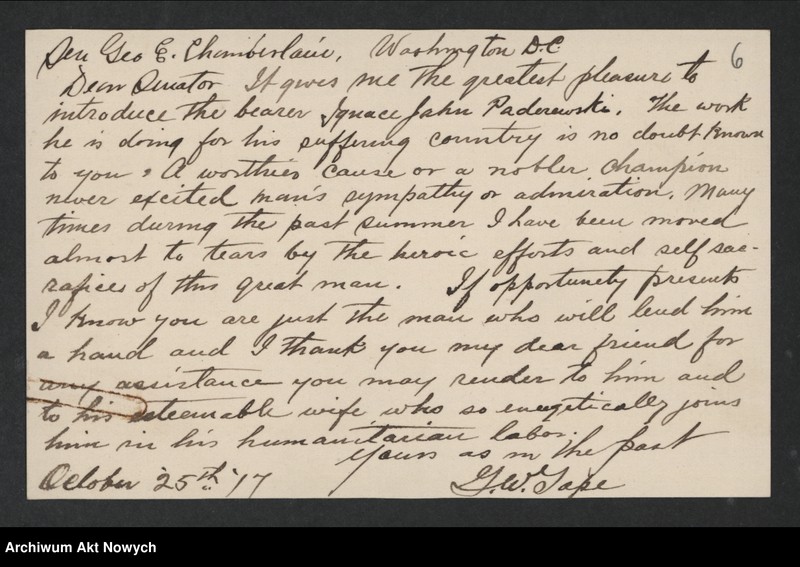 Sen Geo E. Chamberlain, Washington D.C. 6
Dear Senator It gives me the greatest pleasure to
introduce the bearer Ignace Jahn Paderewski. The work
he is doing for his suffering country is no doubt known
to you, A worthier cause or a nobler champion
never excited man's sympathy or admiration. Many
times during the past summer I have been moved
almost to tears by the heroic efforts and self sac-
rafices of this great man. If opportunety presents
I know you are just the man who will lend him
a hand and I thank you my dear friend for
any assistance you may render to him and
to his esteemable wife who so enegetically joins
him in his humanitarian labor.
Yours as in the past
October 25th '17 G. W. Tape
Archiwum Akt Nowych